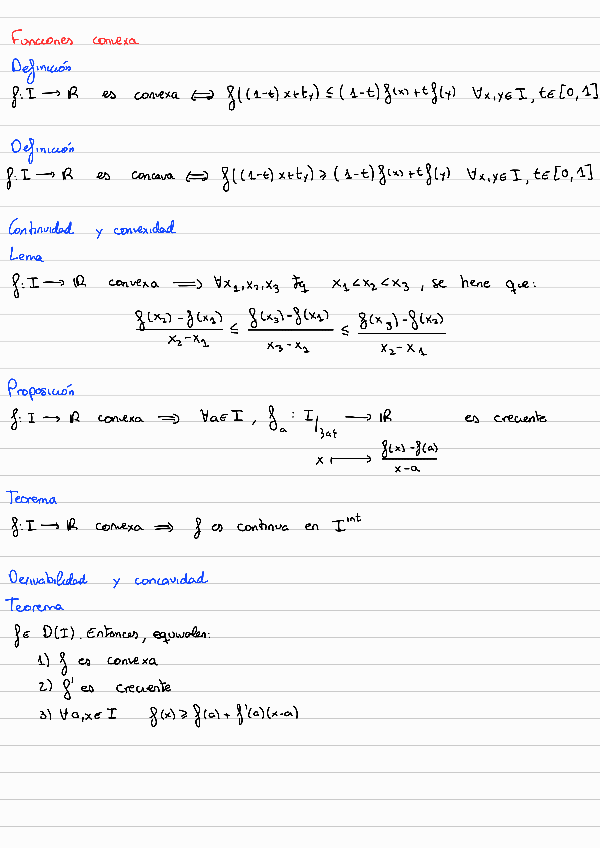 Funciones convexa
Definición
f: I → ℝ es convexa ⟺ f((1-t)x+ty) ≤ (1-t)f(x)+tf(y) ∀x,y∈I, t∈[0,1]
Definición
f: I → ℝ es concava ⟺ f((1-t)x+ty) ≥ (1-t)f(x)+tf(y) ∀x,y∈I, t∈[0,1]
Continuidad y convexidad
Lema
f: I → ℝ convexa ⟹ ∀x₁,x₂,x₃ tq x₁<x₂<x₃, se tiene que:
(f(x₂)-f(x₁))/(x₂-x₁) ≤ (f(x₃)-f(x₁))/(x₃-x₁) ≤ (f(x₃)-f(x₂))/(x₂-x₁)
Proposición
f: I → ℝ convexa ⟹ ∀a∈I, fₐ: I/{a} → ℝ es creciente
x ↦ (f(x)-f(a))/(x-a)
Teorema
f: I → ℝ convexa ⟹ f es continua en I^int
Derivabilidad y concavidad
Teorema
f∈ D(I). Entonces, equivalen:
1) f es convexa
2) f' es creciente
3) ∀a,x∈I f(x) ≥ f(a) + f'(a)(x-a)